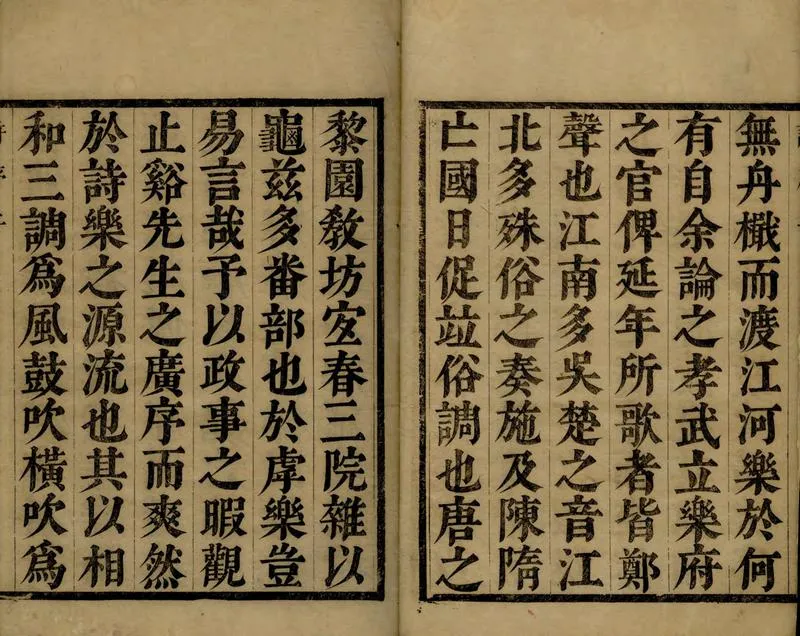 無舟檝而渡江河樂於何
有自余論之孝武立樂府
之官俾延年所歌者皆鄭
聲也江南多吳楚之音江
北多殊俗之奏施及陳隋
亡國日促竝俗調也唐之
黎園敎坊宜春三院雜以
龜玆多番部也於虖樂豈
易言哉予以政事之暇觀
止谿先生之廣序而爽然
於詩樂之源流也其以相
和三調爲風鼓吹橫吹爲